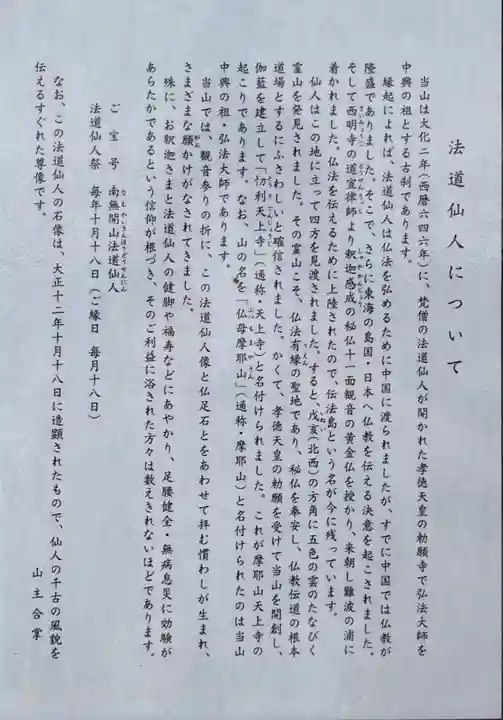 法道仙人について
当山は大化二年(西暦六四六年)に、梵僧の法道仙人が開かれた孝徳天皇の勅願寺で弘法大師を
中興の祖とする古刹であります。
縁起によれば、法道仙人は仏法を弘めるために中国に渡られましたが、すでに中国では仏教が
隆盛でありました。そこで、さらに東海の島国・日本へ仏教を伝える決意を起こされました。
そして西明寺の道宣律師より釈迦感成の秘仏十一面観音の黄金仏を授かり、来朝し難波の浦に
着かれました。仏法を伝えるために上陸されたので、伝法島という名が今に残っています。
仙人はこの地に立って四方を見渡されました。すると、戊亥(北西)の方角に五色の雲のたなびく
霊山を発見されました。その霊山こそ、仏法有縁の聖地であり、秘仏を奉安し、仏教伝道の根本
道場とするにふさわしいと確信されました。かくて、孝徳天皇の勅願を受けて当山を開創し、
伽藍を建立して「忉利天上寺」(通称・天上寺)と名付けられました。これが摩耶山天上寺の
起こりであります。なお、山の名を「仏母摩耶山」(通称・摩耶山)と名付けられたのは当山
中興の祖・弘法大師であります。
当山では、観音参りの折に、この法道仙人像と仏足石とをあわせて拝む慣わしが生まれ、
さまざまな願かけがなされてきました。
殊に、お釈迦さまと法道仙人の健脚や福寿などにあやかり、足腰健全・無病息災に効験が
あらたかであるという信仰が根づき、そのご利益に浴された方々は数えきれないほどであります。
ご宝号 南無開山法道仙人
法道仙人祭 毎年十月十八日(ご縁日 毎月十八日)
なお、この法道仙人の石像は、大正十二年十月十八日に造顕されたもので、仙人の千古の風貌を
伝えるすぐれた尊像です。
山主合掌